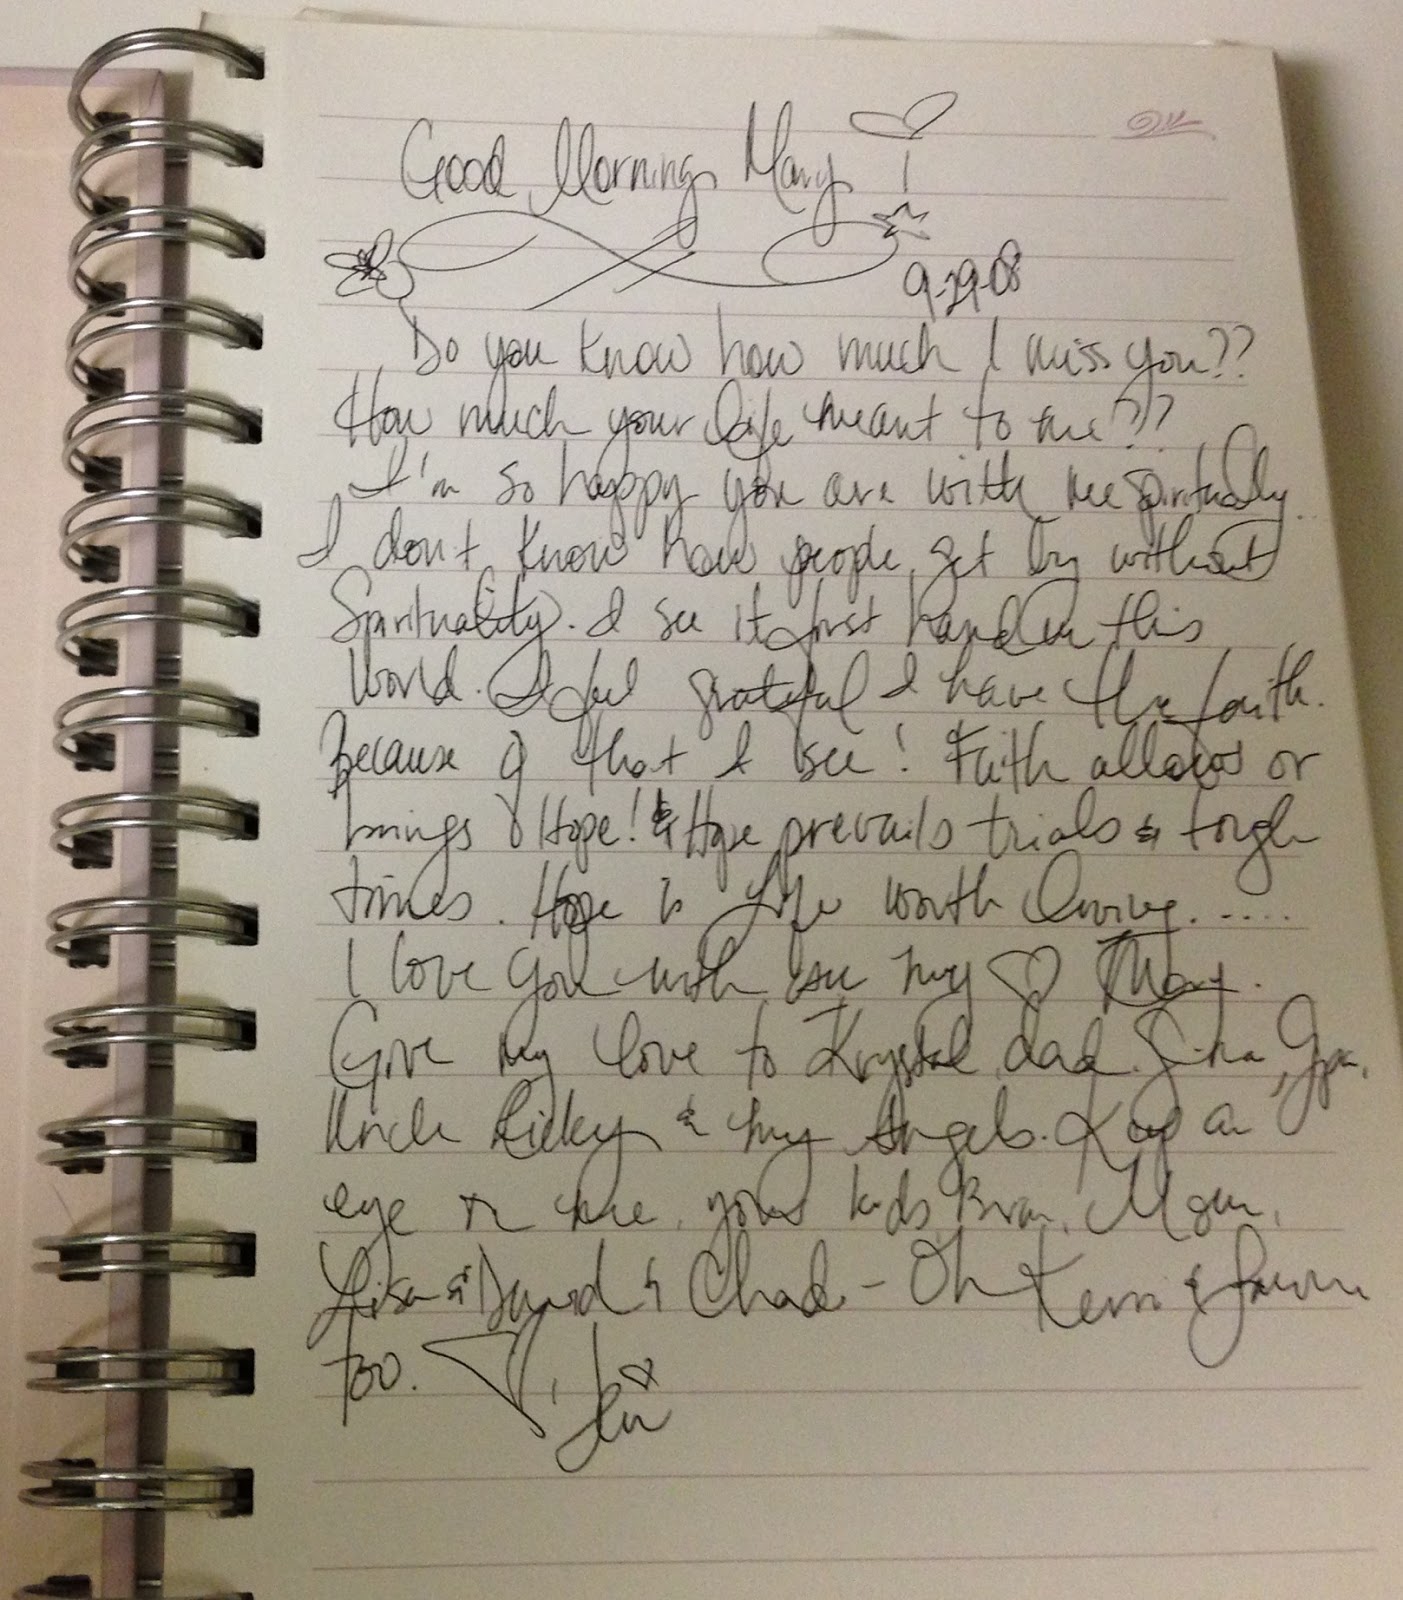 Good Morning Mary !
9-29-08
Do you know how much I miss you??
How much your life meant to me??
I'm so happy you are with me spiritually..
I don't know how people get by without
Spirituality. I see it first hand in this
World. I feel grateful I have the faith.
Because of that I see! Faith allows or
brings Hope! & Hope prevails trials & tough
times. Hope is Life worth living.....
I love you with all my ♡ Mary.
Give my love to Krystal, dad, Gpa,
Uncle Ricky & my Angels. Keep an
eye on me, your kids, Mom,
Lisa & David & Chad - Oh Kerri &
too. ♡,